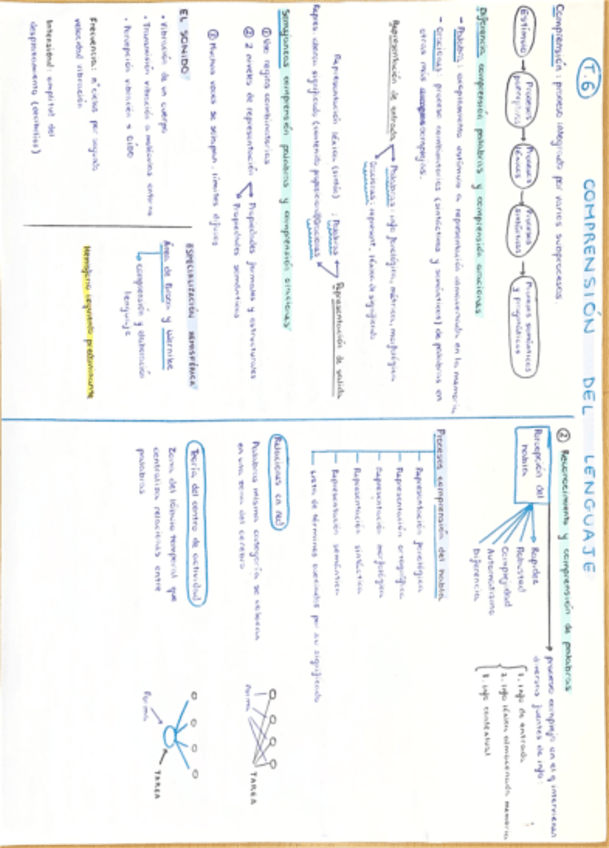 T.6 COMPRENSIÓN DEL LENGUAJE
Comprensión: proceso integrado por varios subprocesos.
Estímulo → Procesos perceptivos → Procesos léxicos → Procesos sintácticos → Procesos semánticos y pragmáticos
Diferencia comprensión palabras y comprensión oraciones
- Palabra: acoplamiento estímulo a representación almacenada en la memoria
- Oraciones: proceso combinatorios (sintácticos y semánticos) de palabras en
otras más complejas.
Representación de entrada
Palabras: info fonológica, métrica, morfológica
Oraciones: represent. léxica de significado
Representación léxica (sintác) : Palabras
Representación de salida
Repres. idea significado (contenido proposic) Oraciones
Semejanzas comprensión palabras y comprensión oraciones
① Usar reglas combinatorias
② 2 niveles de representación
Propiedades formales y estructurales
Propiedades semánticas
③ Muchas veces se solapan: límites difusos
EL SONIDO
• Vibración de un cuerpo
• Transmisión vibración a moléculas entorno
• Percepción vibración x oído
Frecuencia: nº ciclos por segundo
velocidad vibración
Intensidad: amplitud del
desplazamiento (oscilantes)
ESPECIALIZACIÓN HEMISFÉRICA
Área de Broca y Wernicke
↳ comprensión y elaboración
lenguaje
Hemisferio izquierdo predominante
② Reconocimiento y comprensión de palabras
Percepción del habla
proceso complejo en el q intervienen
diversas fuentes de info:
1. info de entrada
2. info léxica almacenada memoria
3. info contextual
Rapidez
Robustez
Complejidad
Automatismo
Diferencia
Procesos comprensión del habla
Representación fonológica
Representación ortográfica
Representación morfológica
Representación sintáctica
Representación semántica
Lista de términos asociados por su significado
Relaciones en red
Palabras misma categoría se observa
en una zona del cerebro
TAREA
Teoría del centro de actividad
Zona del lóbulo temporal que
centraliza relaciones entre
palabras
TAREA